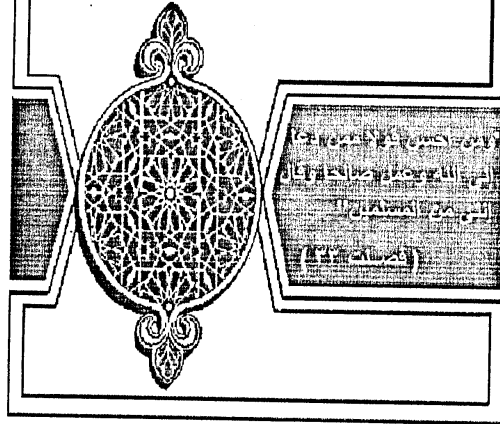 "ومن أحسن قولا ممن دعا
إلى الله وعمل صالحا وقال
إنني من المسلمين"
(فصلت ٣٣)